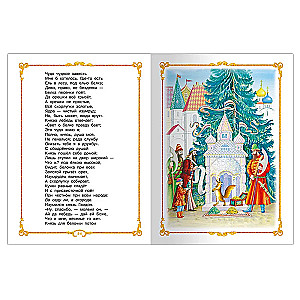 Чудо чудное завесть
Мне б хотелось. Где-то есть
Ель в лесу, под елью белка;
Диво, право, не безделка —
Белка песенки поёт,
Да орешки всё грызёт,
А орешки не простые,
Всё скорлупки золотые,
Ядра — чистый изумруд;
Но, быть может, люди врут».
Князю лебедь отвечает:
«Свет о белке правду бает;
Это чудо знаю я;
Полно, князь, душа моя,
Не печалься; рада службу
Оказать тебе я в дружбу».
С ободрённою душой
Князь пошёл себе домой;
Лишь ступил на двор широкий —
Что ж? под ёлкою высокой,
Видит, белочка при всех
Золотой грызёт орех,
Изумрудец вынимает,
А скорлупку собирает,
Кучки равные кладёт
И с присвисточкой поёт
При честном при всём народе:
Во саду ли, в огороде.
Изумился князь Гвидон.
«Ну, спасибо, — молвил он, —
Ай да лебедь — дай ей боже,
Что и мне, веселье то же».
Князь для белочки потом